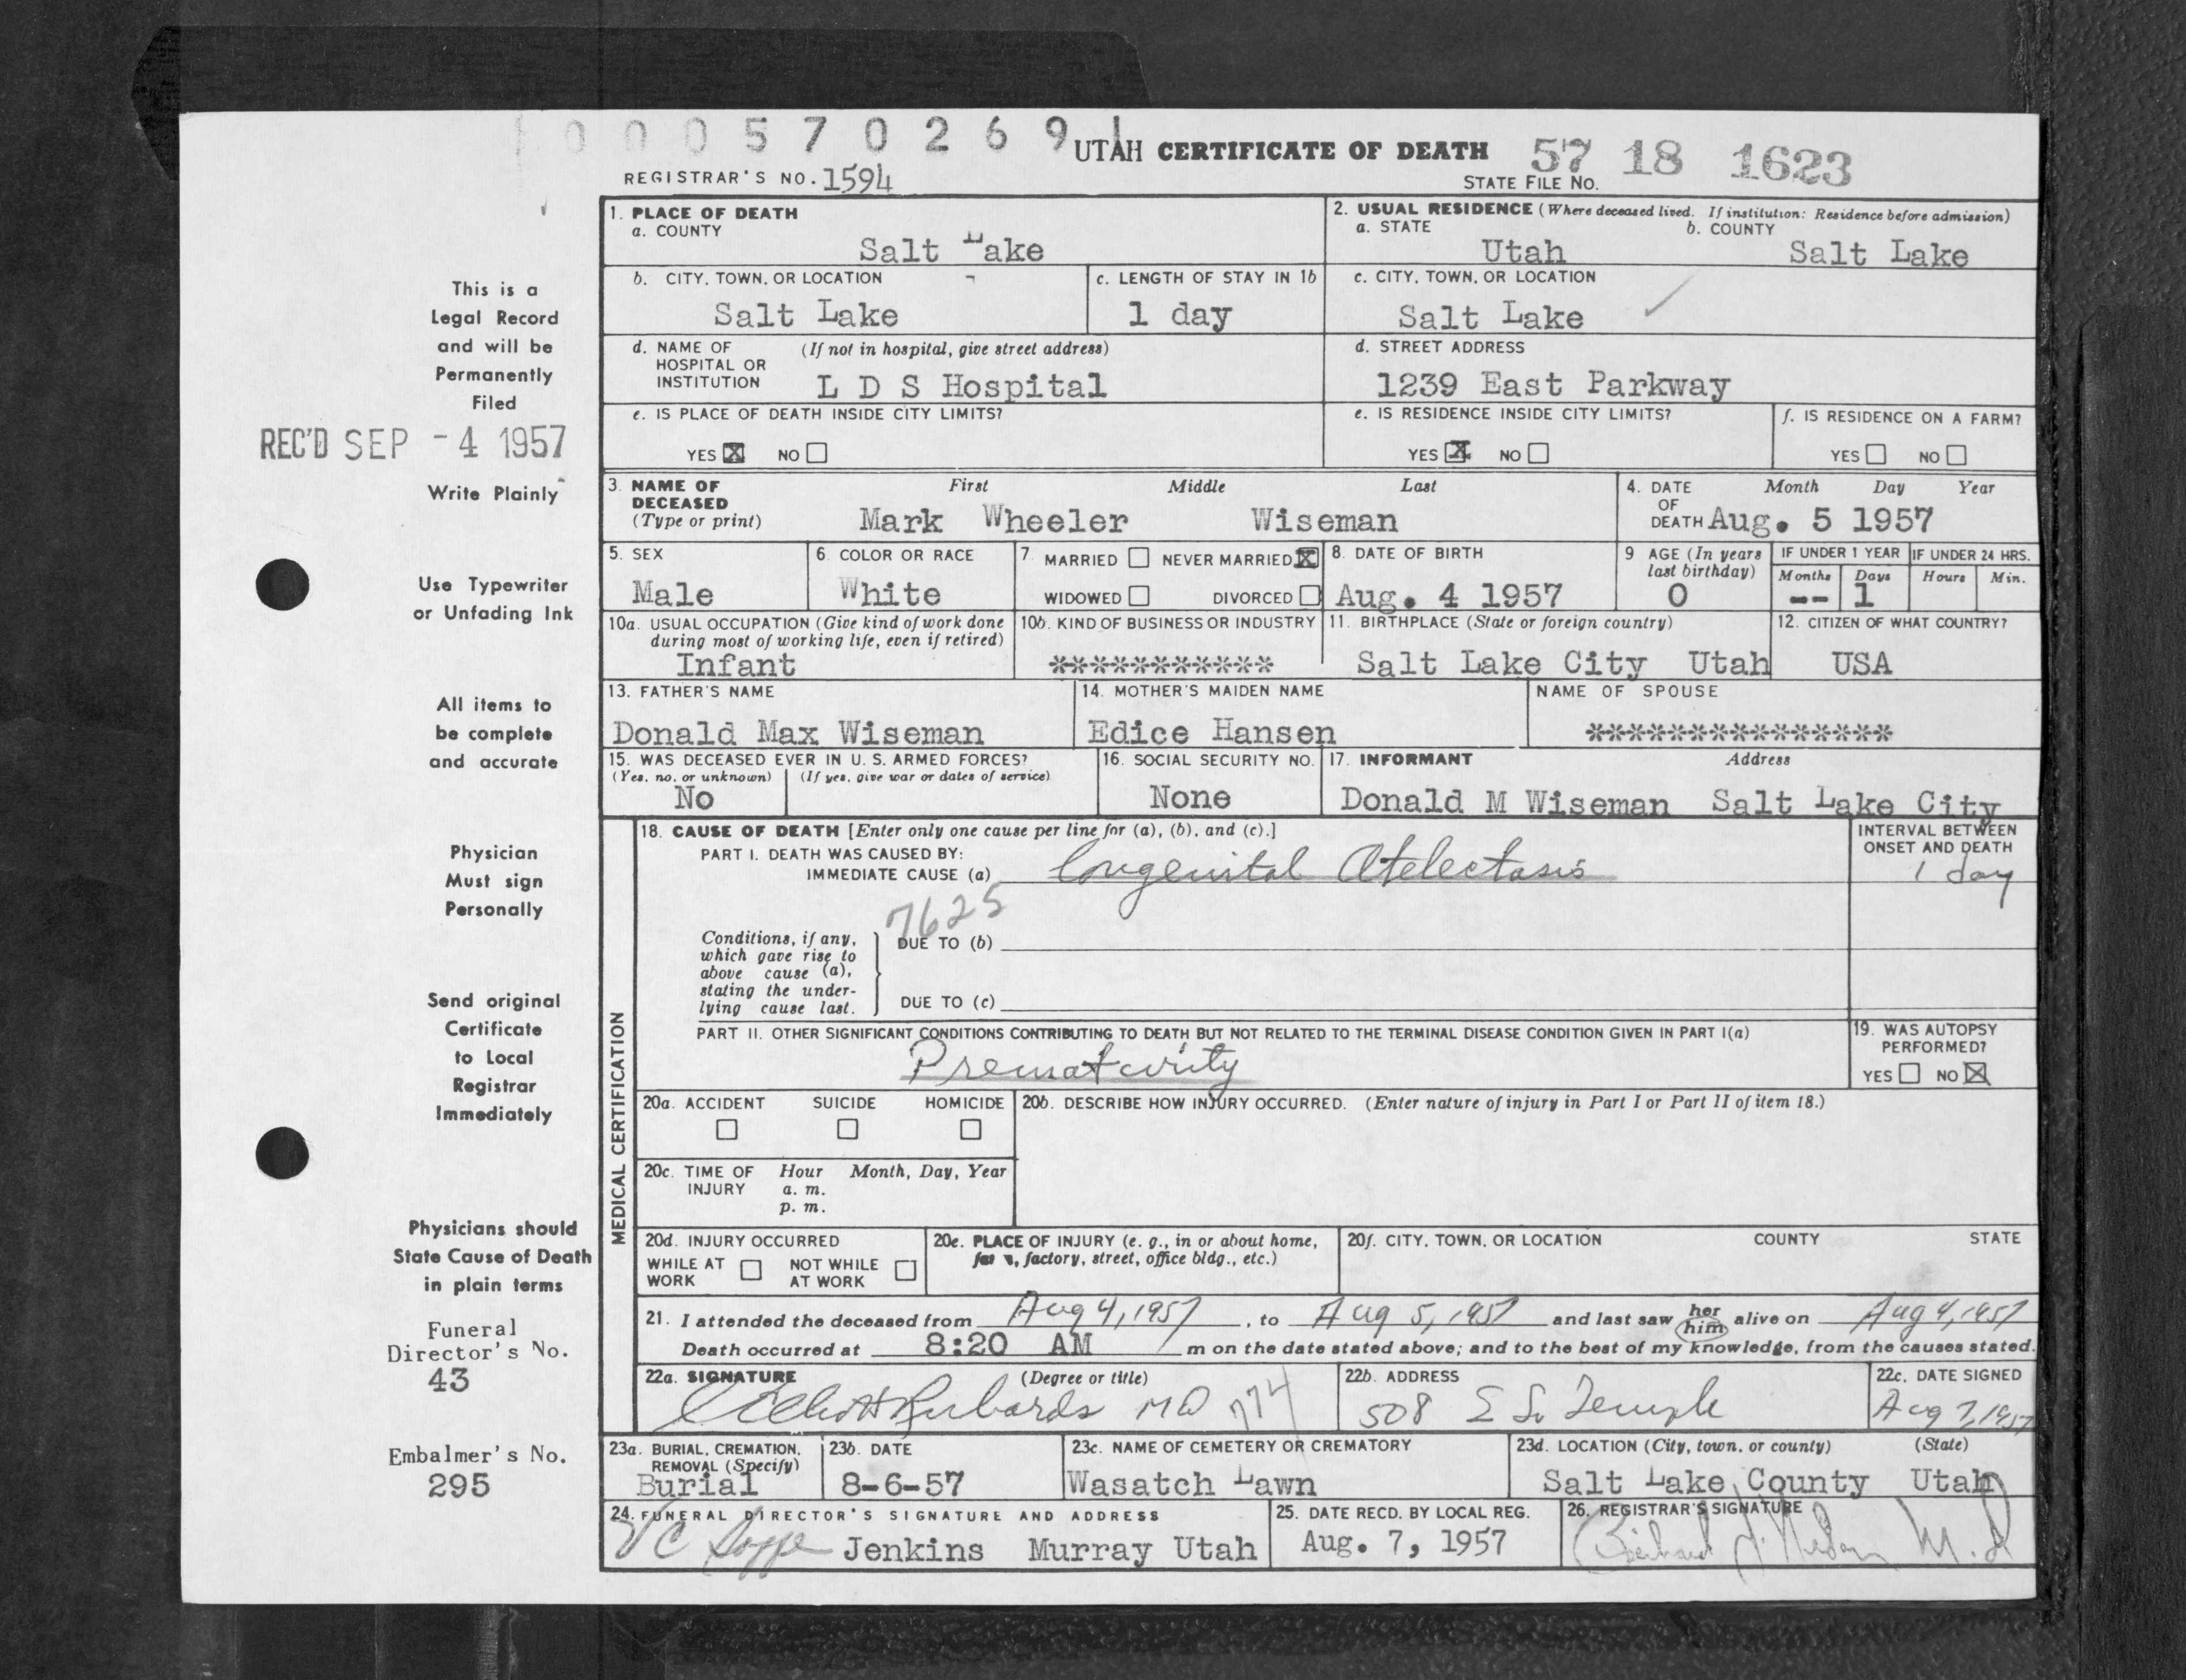 0 0 0 5 7 0 2 6 9
UTAH CERTIFICATE OF DEATH 57 18 1623
REGISTRAR'S NO. 1594
STATE FILE NO.
This is a
Legal Record
and will be
Permanently
Filed
REC'D SEP - 4 1957
Write Plainly
Use Typewriter
or Unfading Ink
All items to
be complete
and accurate
Physician
Must sign
Personally
Send original
Certificate
to Local
Registrar
Immediately
Physicians should
State Cause of Death
in plain terms
Funeral
Director's No.
43
Embalmer's No.
295
1. PLACE OF DEATH
a. COUNTY
Salt Lake
2. USUAL RESIDENCE (Where deceased lived. If institution: Residence before admission)
a. STATE b. COUNTY
Utah Salt Lake
b. CITY, TOWN, OR LOCATION
Salt Lake
c. LENGTH OF STAY IN 1b
1 day
c. CITY, TOWN, OR LOCATION
Salt Lake
d. NAME OF (If not in hospital, give street address)
HOSPITAL OR
INSTITUTION L D S Hospital
d. STREET ADDRESS
1239 East Parkway
e. IS PLACE OF DEATH INSIDE CITY LIMITS?
YES X NO
e. IS RESIDENCE INSIDE CITY LIMITS?
YES X NO
f. IS RESIDENCE ON A FARM?
YES NO
3. NAME OF First Middle Last
DECEASED
(Type or print) Mark Wheeler Wiseman
4. DATE Month Day Year
OF
DEATH Aug. 5 1957
5. SEX
Male
6. COLOR OR RACE
White
7. MARRIED NEVER MARRIED X
WIDOWED DIVORCED
8. DATE OF BIRTH
Aug. 4 1957
9 AGE (In years
last birthday)
0
IF UNDER 1 YEAR IF UNDER 24 HRS.
Months Days Hours Min.
-- 1
10a. USUAL OCCUPATION (Give kind of work done
during most of working life, even if retired)
Infant
10b. KIND OF BUSINESS OR INDUSTRY
***********
11. BIRTHPLACE (State or foreign country)
Salt Lake City Utah
12. CITIZEN OF WHAT COUNTRY?
USA
13. FATHER'S NAME
Donald Max Wiseman
14. MOTHER'S MAIDEN NAME
Edice Hansen
NAME OF SPOUSE
***************
15. WAS DECEASED EVER IN U. S. ARMED FORCES?
(Yes, no, or unknown) (If yes, give war or dates of service)
No
16. SOCIAL SECURITY NO.
None
17. INFORMANT Address
Donald M Wiseman Salt Lake City
MEDICAL CERTIFICATION
18. CAUSE OF DEATH [Enter only one cause per line for (a), (b), and (c).]
PART I. DEATH WAS CAUSED BY:
IMMEDIATE CAUSE (a) Congenital Atelectasis
INTERVAL BETWEEN
ONSET AND DEATH
1 day
7625
Conditions, if any,
which gave rise to
above cause (a),
stating the under-
lying cause last.
DUE TO (b)
DUE TO (c)
PART II. OTHER SIGNIFICANT CONDITIONS CONTRIBUTING TO DEATH BUT NOT RELATED TO THE TERMINAL DISEASE CONDITION GIVEN IN PART I(a)
Prematurity
19. WAS AUTOPSY
PERFORMED?
YES NO X
20a. ACCIDENT SUICIDE HOMICIDE
20b. DESCRIBE HOW INJURY OCCURRED. (Enter nature of injury in Part I or Part II of item 18.)
20c. TIME OF Hour Month, Day, Year
INJURY a. m.
p. m.
20d. INJURY OCCURRED
WHILE AT NOT WHILE
WORK AT WORK
20e. PLACE OF INJURY (e. g., in or about home,
farm, factory, street, office bldg., etc.)
20f. CITY, TOWN, OR LOCATION COUNTY STATE
21. I attended the deceased from Aug 4, 1957, to Aug 5, 1957 and last saw her him alive on Aug 4, 1957
Death occurred at 8:20 AM m on the date stated above; and to the best of my knowledge, from the causes stated.
22a. SIGNATURE (Degree or title)
Richards MD 774
22b. ADDRESS
508 E So Temple
22c. DATE SIGNED
Aug 7, 1957
23a. BURIAL, CREMATION,
REMOVAL (Specify)
Burial
23b. DATE
8-6-57
23c. NAME OF CEMETERY OR CREMATORY
Wasatch Lawn
23d. LOCATION (City, town, or county) (State)
Salt Lake County Utah
24. FUNERAL DIRECTOR'S SIGNATURE AND ADDRESS
Jenkins Murray Utah
25. DATE RECD. BY LOCAL REG.
Aug. 7, 1957
26. REGISTRAR'S SIGNATURE
M.D.